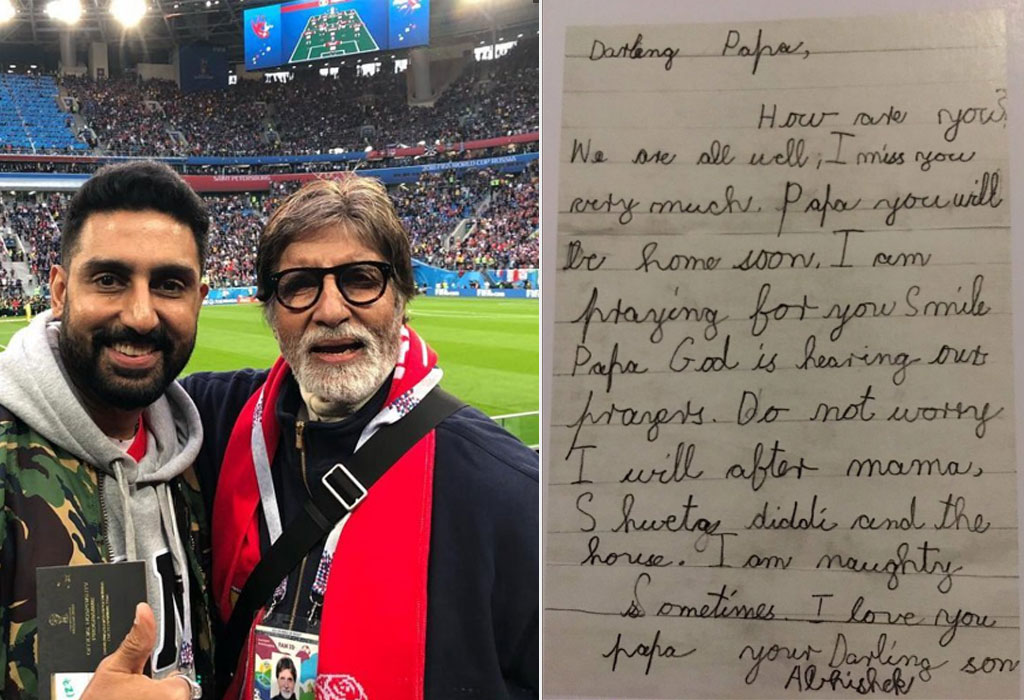 FIFA WORLD CUP RUSSIA
SAINT PETERSBURG
FIFA
FAN ID
Darling Papa,
How are you?
We are all well, I miss you
very much. Papa you will
be home soon. I am
praying for you Smile
Papa God is hearing our
prayers. Do not worry
I will after mama,
Shweta diddi and the
house. I am naughty
Sometimes. I love you
papa your Darling son
Abhishek